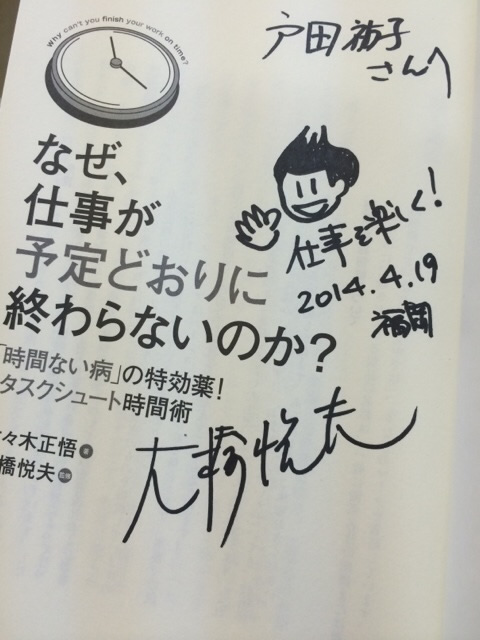 Why can't you finish your work on time?
戸田祐子
さんへ
なぜ、
仕事が
予定どおりに
終わらないのか?
仕事を楽しく!
2014.4.19
福岡
「時間ない病」の特効薬!
タスクシュート時間術
々木正悟 著
橋悦夫 監修
大橋悦夫